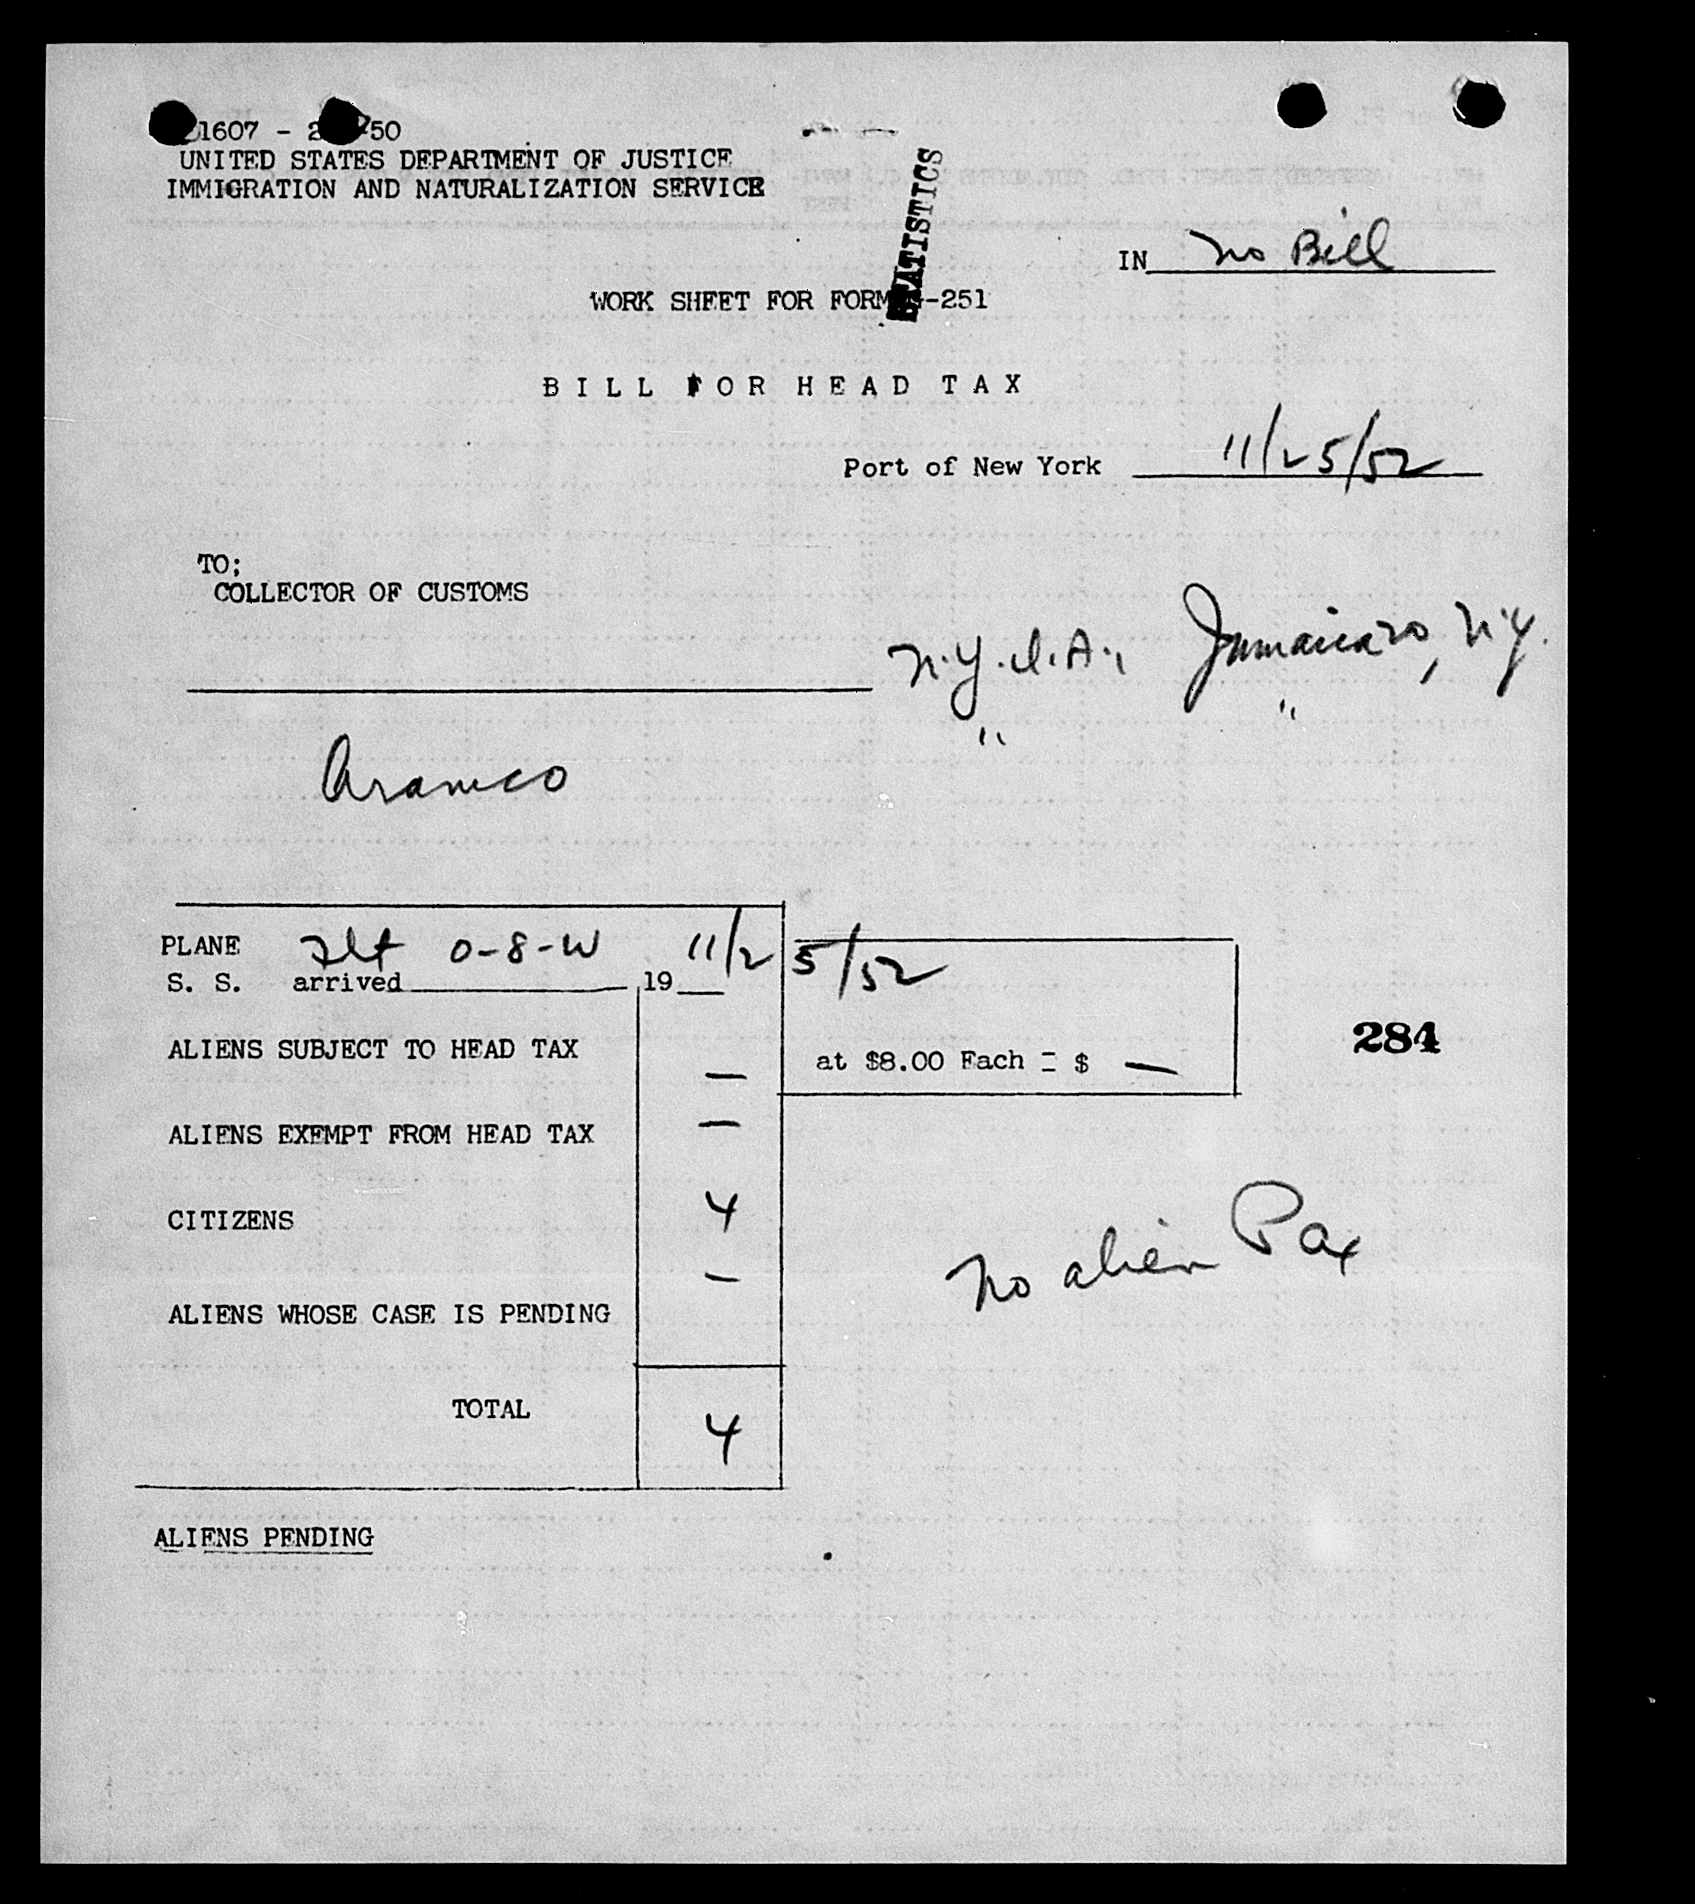 1607 - 2 50
UNITED STATES DEPARTMENT OF JUSTICE
IMMIGRATION AND NATURALIZATION SERVICE
STATISTICS
IN no Bill
WORK SHEET FOR FORM G-251
BILL FOR HEAD TAX
Port of New York 11/25/52
TO;
COLLECTOR OF CUSTOMS
N.Y.I.A., Jamaica 20, N.Y.
" "
Aramco
PLANE Flt 0-8-W 11/25/52
S. S. arrived 19
ALIENS SUBJECT TO HEAD TAX —
at $8.00 Each = $ —
284
ALIENS EXEMPT FROM HEAD TAX —
CITIZENS 4
no alien Pax
ALIENS WHOSE CASE IS PENDING —
TOTAL 4
ALIENS PENDING